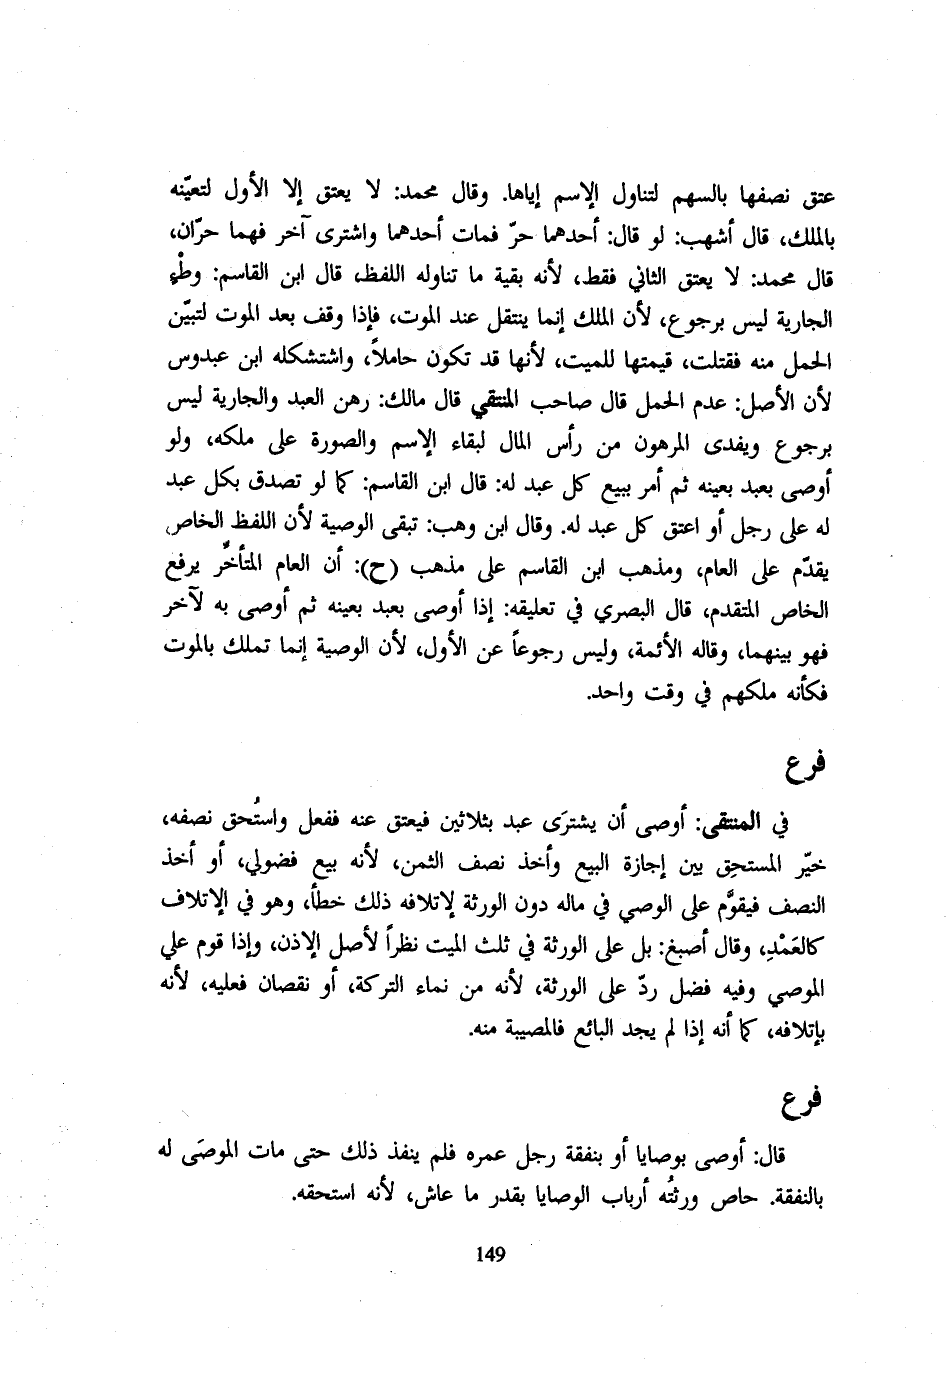 عتق نصفها بالسهم لتناول الإسم إياها. وقال محمد: لا يعتق إلا الأول لتعيّنه
بالملك، قال أشهب: لو قال: أحدهما حرّ فمات أحدهما واشترى آخر فهما حرّان،
قال محمد: لا يعتق الثاني فقط، لأنه بقية ما تناوله اللفظ، قال ابن القاسم: وطْء
الجارية ليس برجوع، لأن الملك إنما ينتقل عند الموت، فإذا وقف بعد الموت لتبيّن
الحمل منه فقتلت، قيمتها للميت، لأنها قد تكون حاملاً، واشتشكله ابن عبدوس
لأن الأصل: عدم الحمل قال صاحب المنتقي قال مالك: رهن العبد والجارية ليس
برجوع ويفدى المرهون من رأس المال لبقاء الإسم والصورة على ملكه، ولو
أوصى بعبد بعينه ثم أمر ببيع كل عبد له: قال ابن القاسم: كما لو تصدق بكل عبد
له على رجل أو اعتق كل عبد له. وقال ابن وهب: تبقى الوصية لأن اللفظ الخاص
يقدّم على العام، ومذهب ابن القاسم على مذهب (ح): أن العام المتأخّر يرفع
الخاص المتقدم، قال البصري في تعليقه: إذا أوصى بعبد بعينه ثم أوصى به لآخر
فهو بينهما، وقاله الأئمة، وليس رجوعاً عن الأول، لأن الوصية إنما تملك بالموت
فكأنه ملكهم في وقت واحد.
فرع
في المنتقى: أوصى أن يشترَى عبد بثلاثين فيعتق عنه ففعل واستُحق نصفه،
خيّر المستحِق بين إجازة البيع وأخذ نصف الثمن، لأنه بيع فضولي، أو أخذ
النصف فيقوَّم على الوصي في ماله دون الورثة لإتلافه ذلك خطأ، وهو في الإتلاف
كالعَمْدِ، وقال أصبغ: بل على الورثة في ثلث الميت نظراً لأصل الإذن، وإذا قوم علي
الموصي وفيه فضل ردّ على الورثة، لأنه من نماء التركة، أو نقصان فعليه، لأنه
بإتلافه، كما أنه إذا لم يجد البائع فالمصيبة منه.
فرع
قال: أوصى بوصايا أو بنفقة رجل عمره فلم ينفذ ذلك حتى مات الموصَى له
بالنفقة. حاص ورثتُه أرباب الوصايا بقدر ما عاش، لأنه استحقه.
149